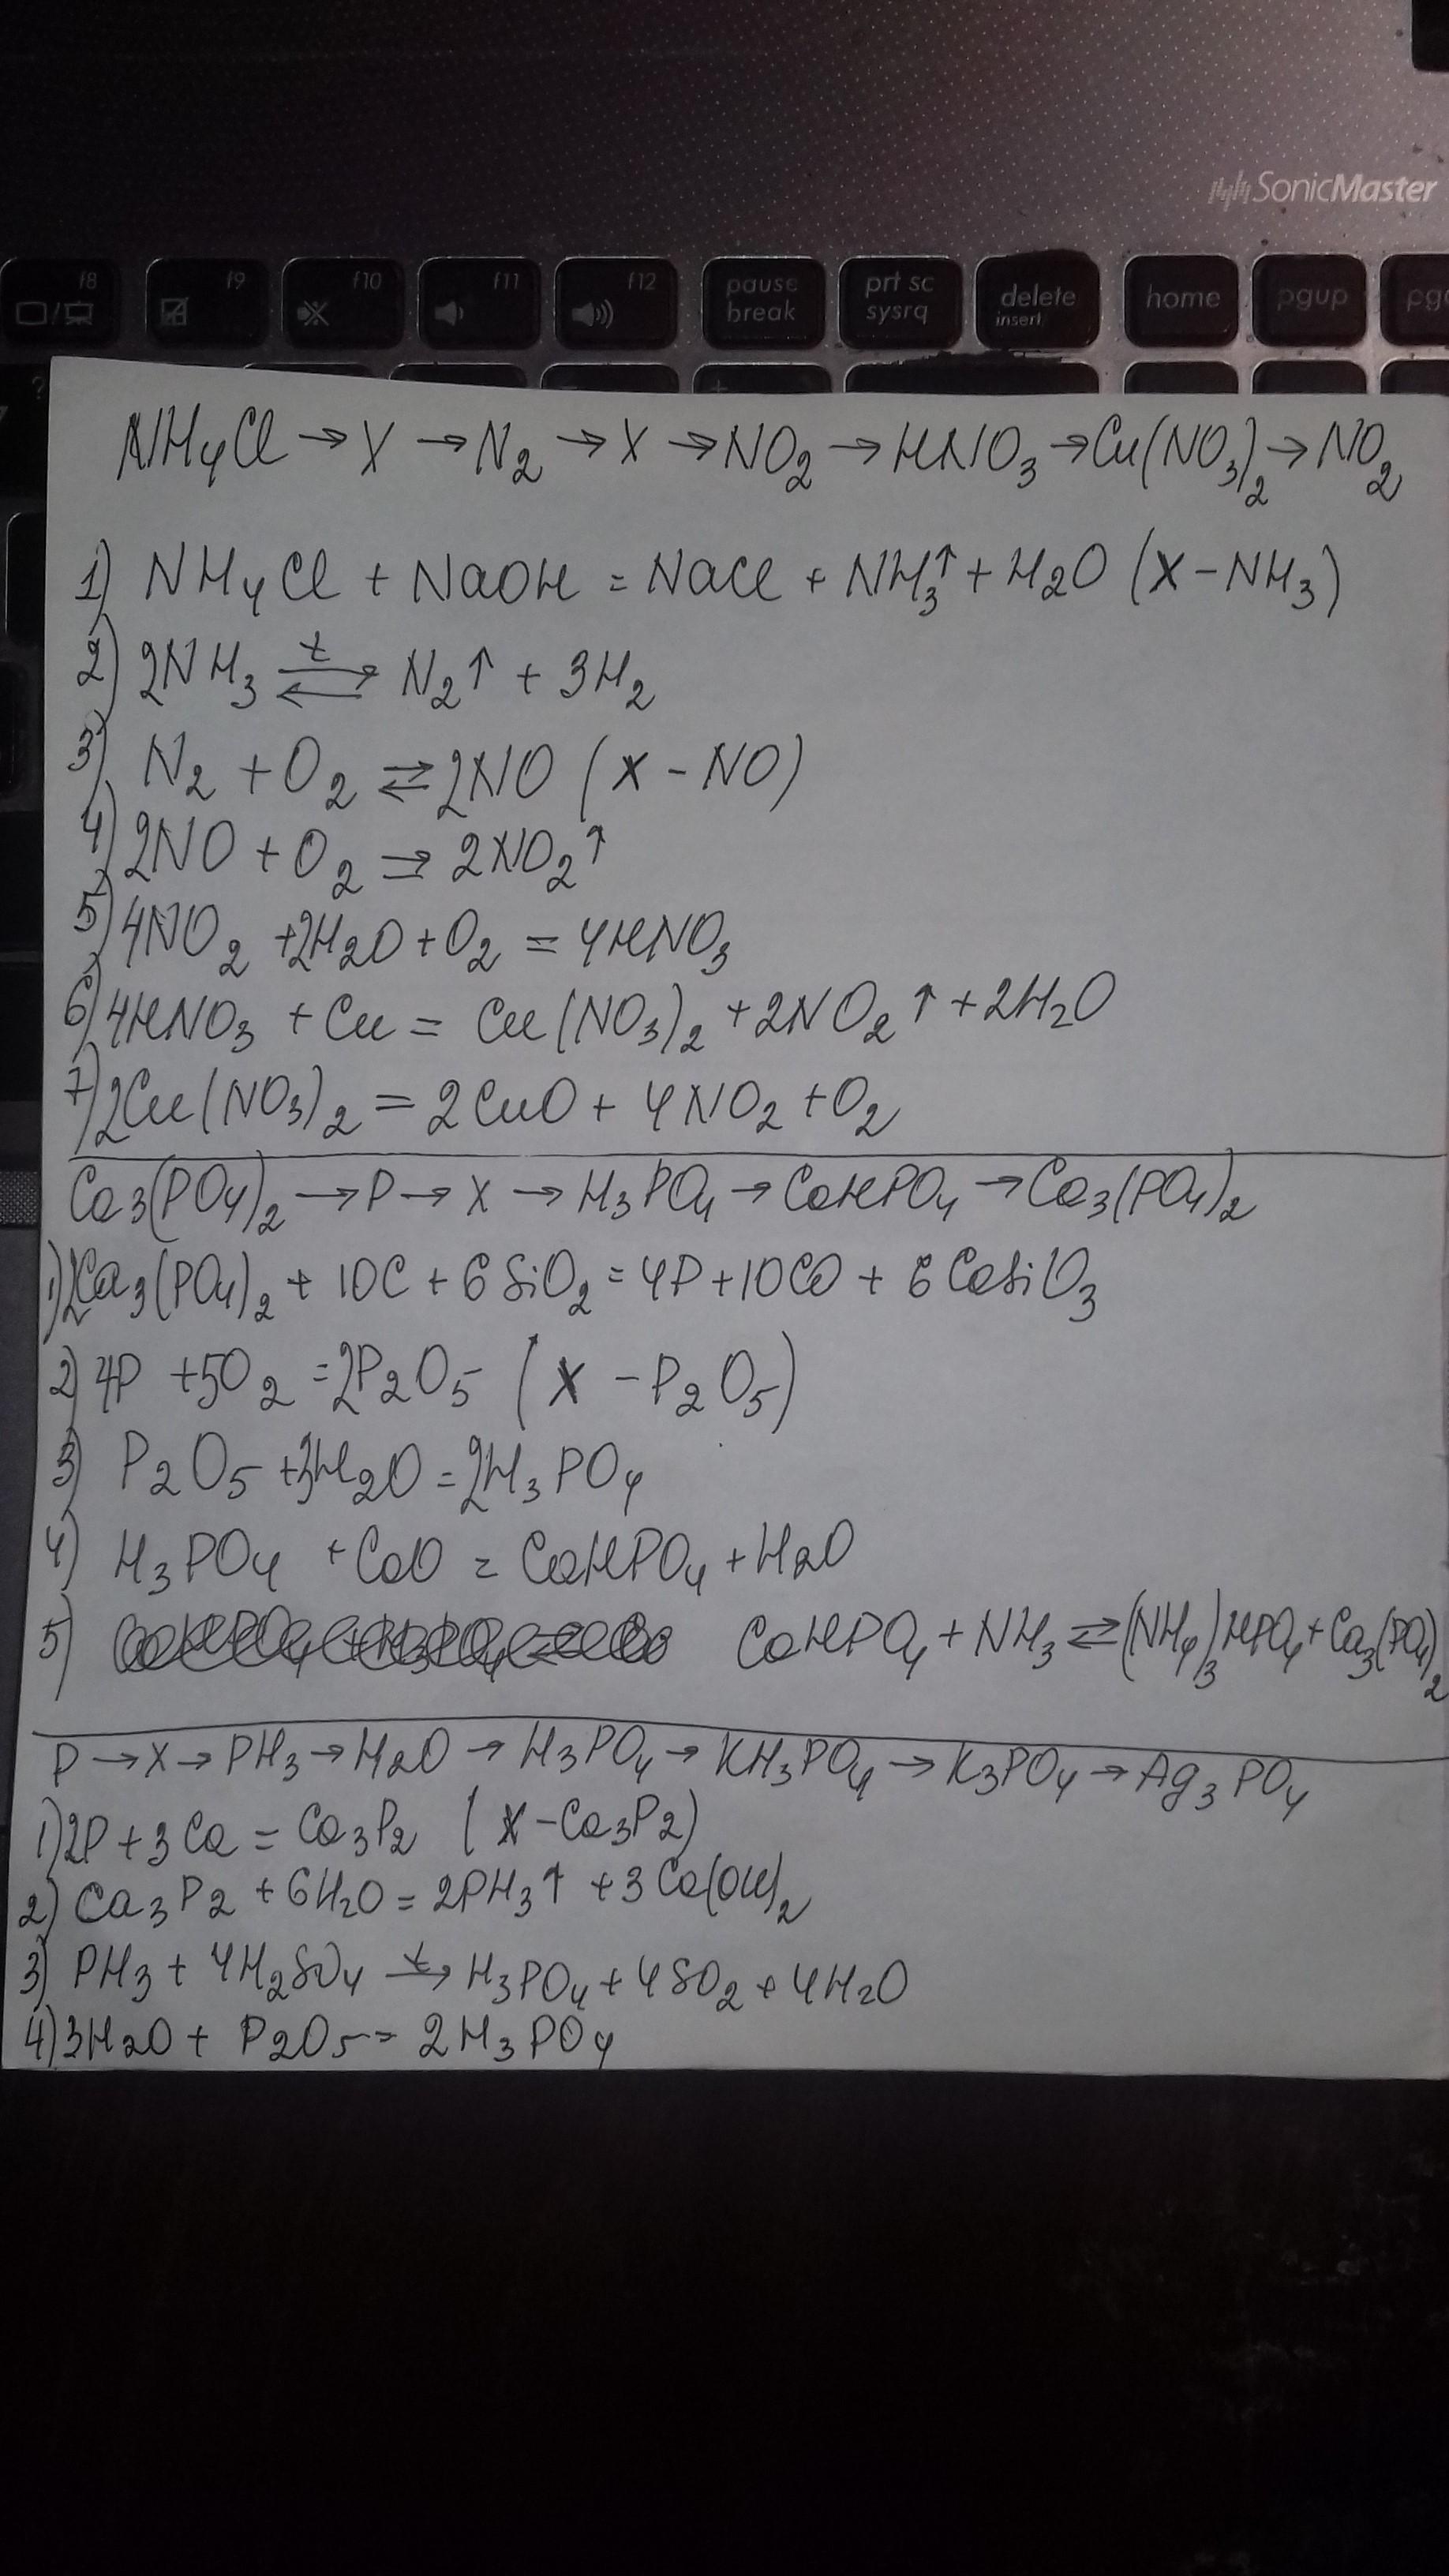 SonicMaster
f8 f9 f10 f11 f12 pause break prt sc sysrq delete insert home pgup pg
NH₄Cl → X → N₂ → X → NO₂ → HNO₃ → Cu(NO₃)₂ → NO₂
1) NH₄Cl + NaOH = NaCl + NH₃↑ + H₂O (X - NH₃)
2) 2NH₃ ⇄ᵗ N₂↑ + 3H₂
3) N₂ + O₂ ⇄ 2NO (X - NO)
4) 2NO + O₂ → 2NO₂↑
5) 4NO₂ + 2H₂O + O₂ = 4HNO₃
6) 4HNO₃ + Cu = Cu(NO₃)₂ + 2NO₂↑ + 2H₂O
7) 2Cu(NO₃)₂ = 2CuO + 4NO₂ + O₂
Ca₃(PO₄)₂ → P → X → H₃PO₄ → CaHPO₄ → Ca₃(PO₄)₂
1) 2Ca₃(PO₄)₂ + 10C + 6SiO₂ = 4P + 10CO + 6CaSiO₃
2) 4P + 5O₂ = 2P₂O₅ (X - P₂O₅)
3) P₂O₅ + 3H₂O = 2H₃PO₄
4) H₃PO₄ + CaO = CaHPO₄ + H₂O
5) CaHPO₄ + NH₃ ⇄ (NH₄)₃HPO₄ + Ca₃(PO₄)₂
P → X → PH₃ → H₂O → H₃PO₄ → KH₃PO₄ → K₃PO₄ → Ag₃PO₄
1) 2P + 3Ca = Ca₃P₂ (X - Ca₃P₂)
2) Ca₃P₂ + 6H₂O = 2PH₃↑ + 3Ca(OH)₂
3) PH₃ + 4H₂SO₄ →ᵗ H₃PO₄ + 4SO₂ + 4H₂O
4) 3H₂O + P₂O₅ = 2H₃PO₄